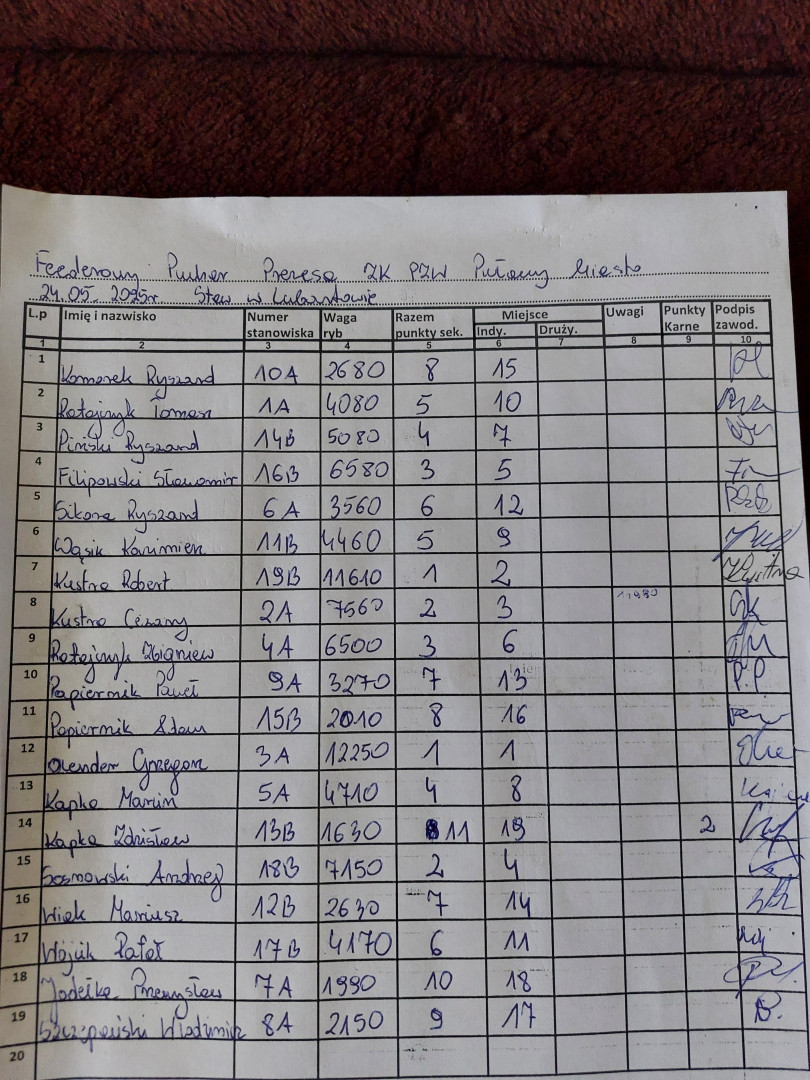 Feederowy Puchar Prezesa ZK PZW Puławy Miasto
24.05.2025r Staw w Lubartowie
L.p Imię i nazwisko Numer stanowiska Waga ryb Razem punkty sek. Miejsce Indy. Druży. Uwagi Punkty Karne Podpis zawod.
1 2 3 4 5 6 7 8 9 10
1 Komorek Ryszard 10A 2680 8 15
2 Ratajczyk Tomasz 1A 4080 5 10
3 Piński Ryszard 14B 5080 4 7
4 Filipowski Sławomir 16B 6580 3 5
5 Sikora Ryszard 6A 3560 6 12
6 Wąsik Kazimierz 11B 4460 5 9
7 Kustra Robert 19B 11610 1 2
8 Kustra Cezary 2A 7560 2 3
9 Ratajczyk Zbigniew 4A 6500 3 6
10 Papiernik Paweł 9A 3270 7 13 P.P
11 Papiernik Adam 15B 2010 8 16
12 Olender Grzegorz 3A 12250 1 1
13 Kapka Marcin 5A 4710 4 8
14 Kapka Zdzisław 13B 1630 11 19 2
15 Sosnowski Andrzej 18B 7150 2 4
16 Wiak Mariusz 12B 2630 7 14
17 Wójcik Rafał 17B 4170 6 11
18 Jodełka Przemysław 7A 1990 10 18
19 Szczepański Włodzimierz 8A 2150 9 17
20